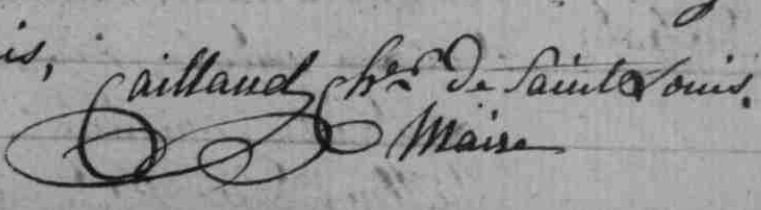 is,
Caillaud Cher de Saint Louis.
Maire